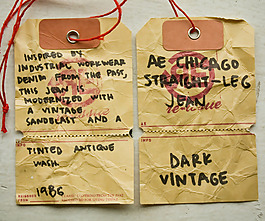 INSPIRED BY
INDUSTRIAL WORKWEAR
DENIM FROM THE PAST,
THIS JEAN IS
MODERNIZED WITH
A VINTAGE
SANDBLAST AND A
TINTED ANTIQUE
WASH
1986
AE CHICAGO
STRAIGHT-LEG
JEAN
DARK
VINTAGE